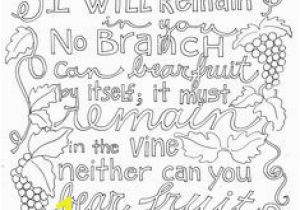 I WILL REMAIN
in you
NO BRANCH
Can bear fruit
by itself; it must
REMAIN
in the VINE
neither can you
bear fruit